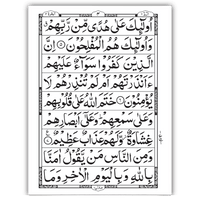 أُولَٰئِكَ عَلَىٰ هُدًى مِّن رَّبِّهِمْ
وَأُولَٰئِكَ هُمُ الْمُفْلِحُونَ ۝ إِنَّ
الَّذِينَ كَفَرُوا سَوَاءٌ عَلَيْهِمْ
ءَأَنذَرْتَهُمْ أَمْ لَمْ تُنذِرْهُمْ لَا
يُؤْمِنُونَ ۝ خَتَمَ اللَّهُ عَلَىٰ قُلُوبِهِمْ
وَعَلَىٰ سَمْعِهِمْ وَعَلَىٰ أَبْصَارِهِمْ
غِشَاوَةٌ وَلَهُمْ عَذَابٌ عَظِيمٌ
وَمِنَ النَّاسِ مَن يَقُولُ آمَنَّا
بِاللَّهِ وَبِالْيَوْمِ الْآخِرِ وَمَا